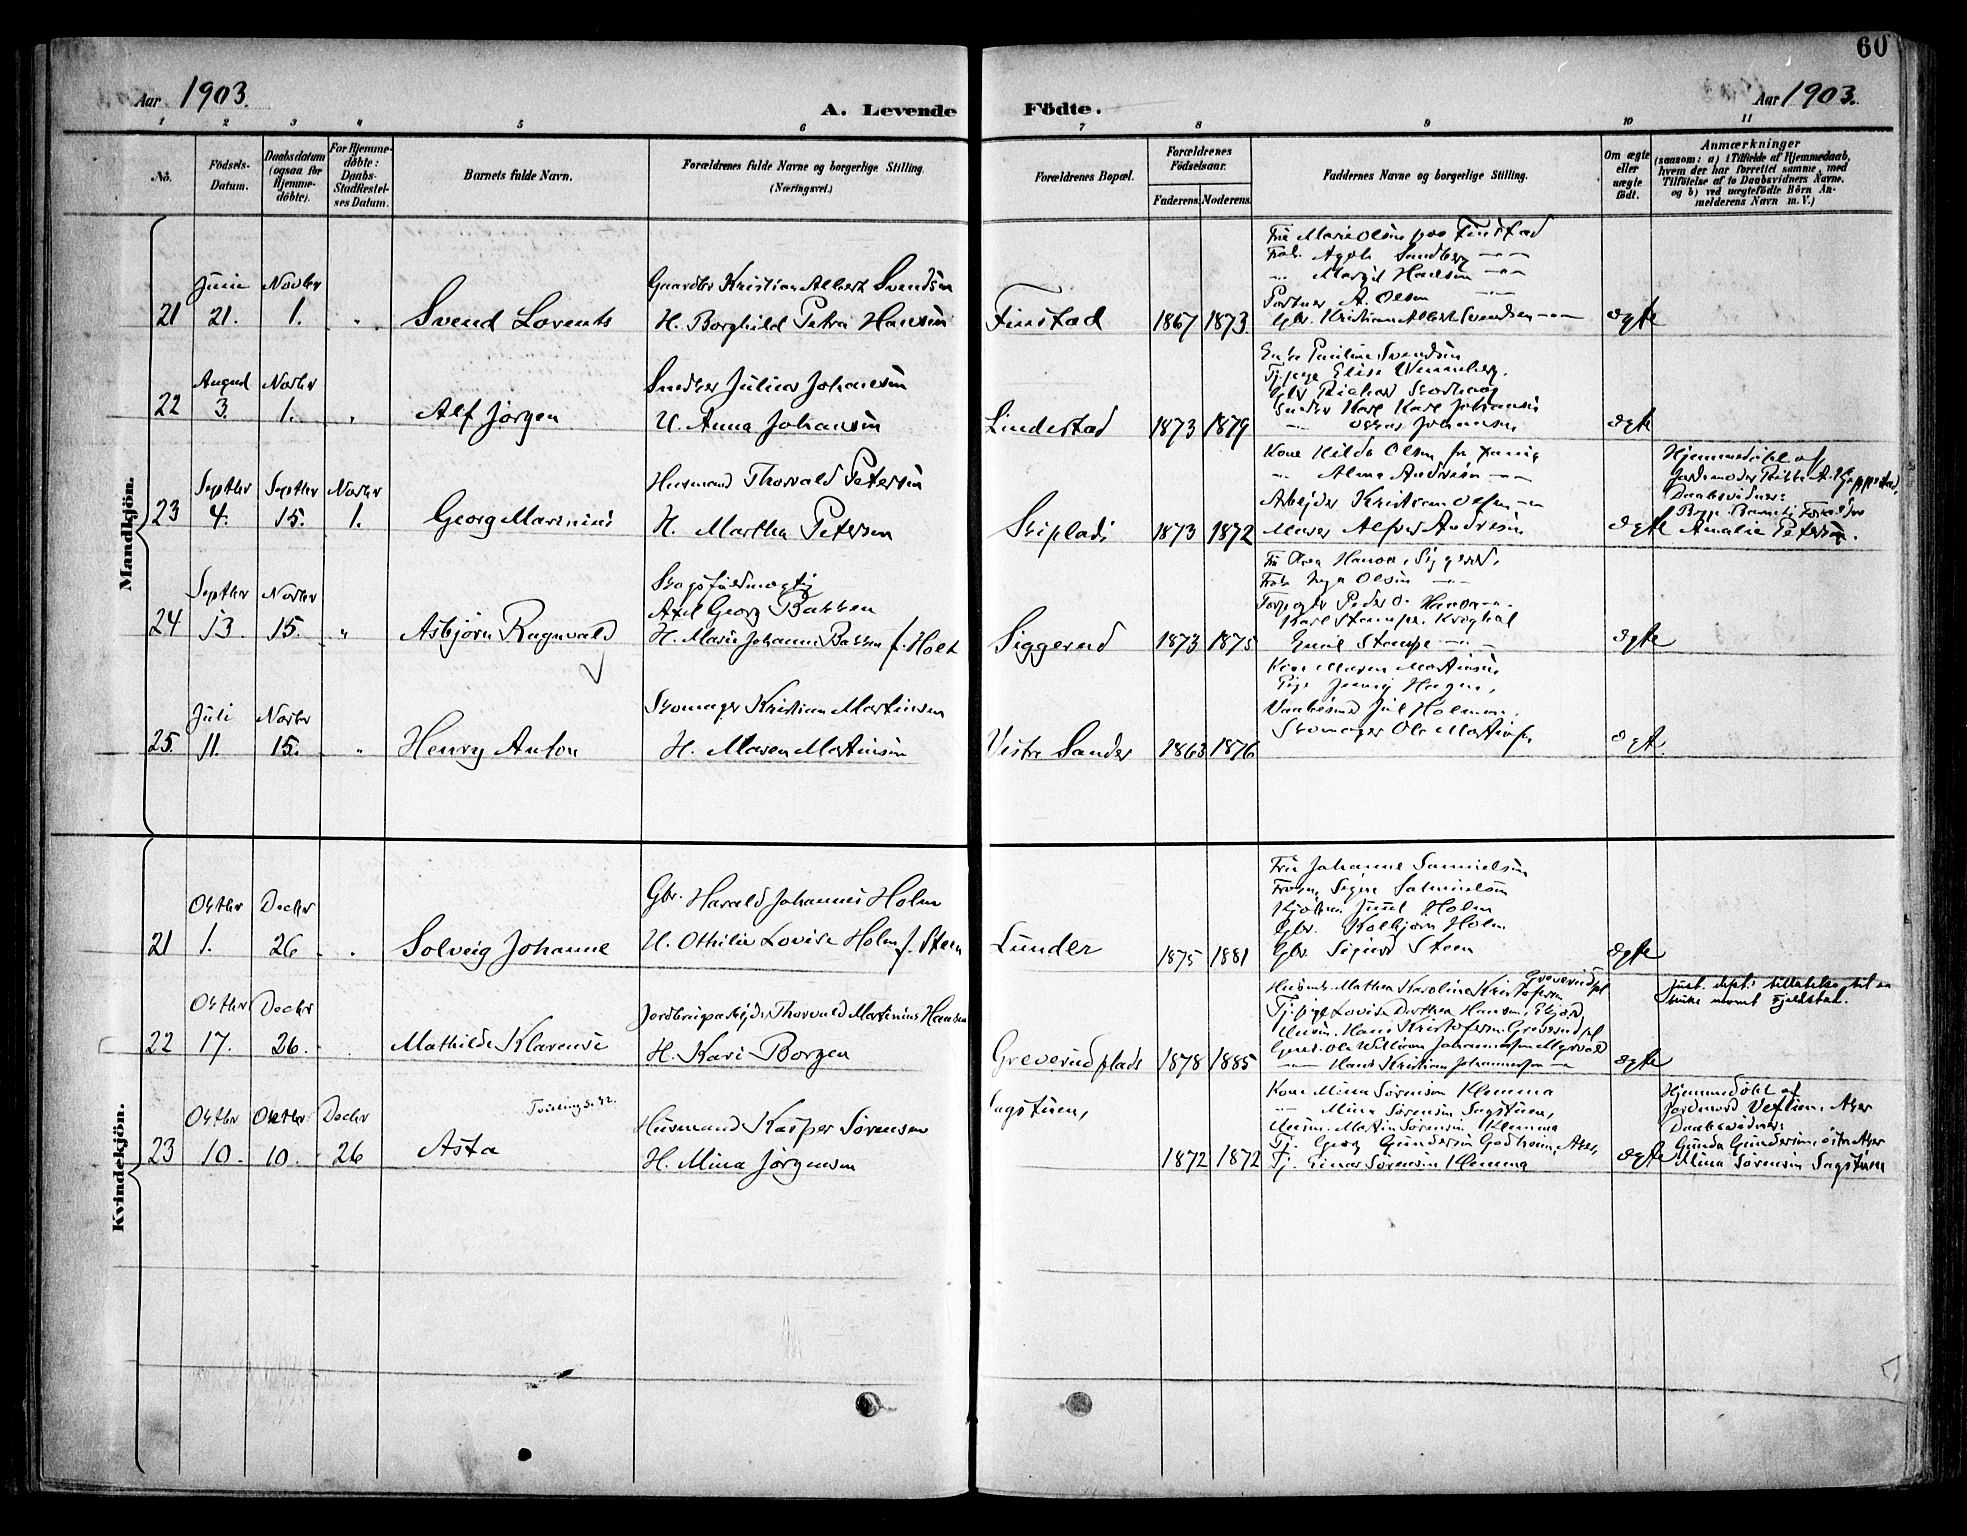 60
Aar 1903.
A. Levende Födte.
Aar 1903.
1 2 3 4 5 6 7 8 9 10 11
No.
Födsels-Datum.
Daabsdatum (ogsaa for Hjemme-döbte).
For Hjemme-döbte: Daabs-Stadfæstel-ses Datum.
Barnets fulde Navn.
Forældrenes fulde Navne og borgerlige Stilling. (Næringsvei.)
Forældrenes Bopæl.
Forældrenes Födselsaar.
Faderens. Moderens.
Faddernes Navne og borgerlige Stilling.
Om ægte eller uægte födt.
Anmærkninger
(saasom: a) i Tilfælde af Hjemmedaab,
hvem der har forrettet samme, med
Tilföielse af to Daabsvidners Navne,
og b) ved uægtefödte Börn An-
melderens Navn m. V.)
Mandkjön.
21 Juni 21. Novbr 1. " Svend Lorents
Gaardbr Kristian Albert Svendsen
H. Borghild Petra Hansen
Finstad 1867 1873
Frk. Agda Sandberg — " —
" Margit Hansen — " —
Portner A. Olsen — " —
Gbr. Kristian Albert Svendsen — " —
ægte
22 August 3. Novbr 1. " Alf Jörgen
Snedker Julius Johansen
H. Anna Johansen
Lindestad 1873 1879
Enke Pauline Svendsen
Tj.pige Elise Wennberg.
Snedker Karl Karl Johansen
— " — Oskar Johansen
ægte
23 Septbr 4. Septbr 15. Novbr 1. Georg Marinius
Husmand Thorvald Petersen
H. Martha Petersen
Skiplads 1873 1872
Kone Hilda Olsen
— " — Alma Andresen — " —
Arbejder Kristian Olsen — " —
Maler Alfred Andresen
ægte
Hjemmedöbt af
Daabsvidner:
Amalie Petersen.
24 Septbr 13. Novbr 15. " Asbjörn Ragnvald
Skogsfuldmægtig
Axel Georg Bakken
H. Marie Johanne Bakken f. Holt
Siggerud 1873 1875
Frk. Inga Olsen — " —
Emil Stampe — " —
ægte
25. Juli 11. Novbr 15. " Henry Anton
Skomager Kristian Martinsen
H. Maren Martinsen
Vestre Sander 1863 1876
Kone Maren Martinsen
Pige Jenny Hagen,
Skomager Ole Martinsen
ægt.
Kvindekjön.
21 Oktbr 1. Decbr 26 " Solveig Johanne
Gbr. Harald Johannes Holm
H. Othilie Lovise Holm f. Steen
Lunder 1875 1881
Fru Johanne Samuelsen
Fröken Signe Samuelsen
Juul Holm
Gbr. Kolbjörn Holm
Gbr. Sigurd Steen
ægte
22 Oktbr 17. Decbr 26. Mathilde Klarense
Jordbrugsarbejder Thorvald Martinius Hansen
H. Kari Borgen
Greverudplads 1878 1885
Husmk. Mathea Karoline Kristofersen Greverudpl
Tj.pige Lovise Dorthea Hansen,
Husm. Hans Kristofersen Greverudpl
Ole William Johannessen Myrvold
— " — Hans Kristian Johannessen — " —
ægte
just. dept.s tilladelse til at
bruke navnet Fjeldstad.
23 Oktbr 10. Oktbr 10. Decbr 26 Asta
Tvilling
Husmand Kasper Sörensen
H. Mina Jörgensen
Sagstuen, 1872 1872
Kone Mina Sörensen Klemma
— " — Mina Sörensen Sagstuen,
Husm. Martin Sörensen Klemma
Tj. Georg Gundersen Godheim, Aker,
Tj. Einar Sörensen Klemma
ægte
Hjemmedöbt af
Jordmord Vetlien, Aker
Daabsvidner:
Gunda Gundersen, östre Aker
Mina Sörensen Sagstuen